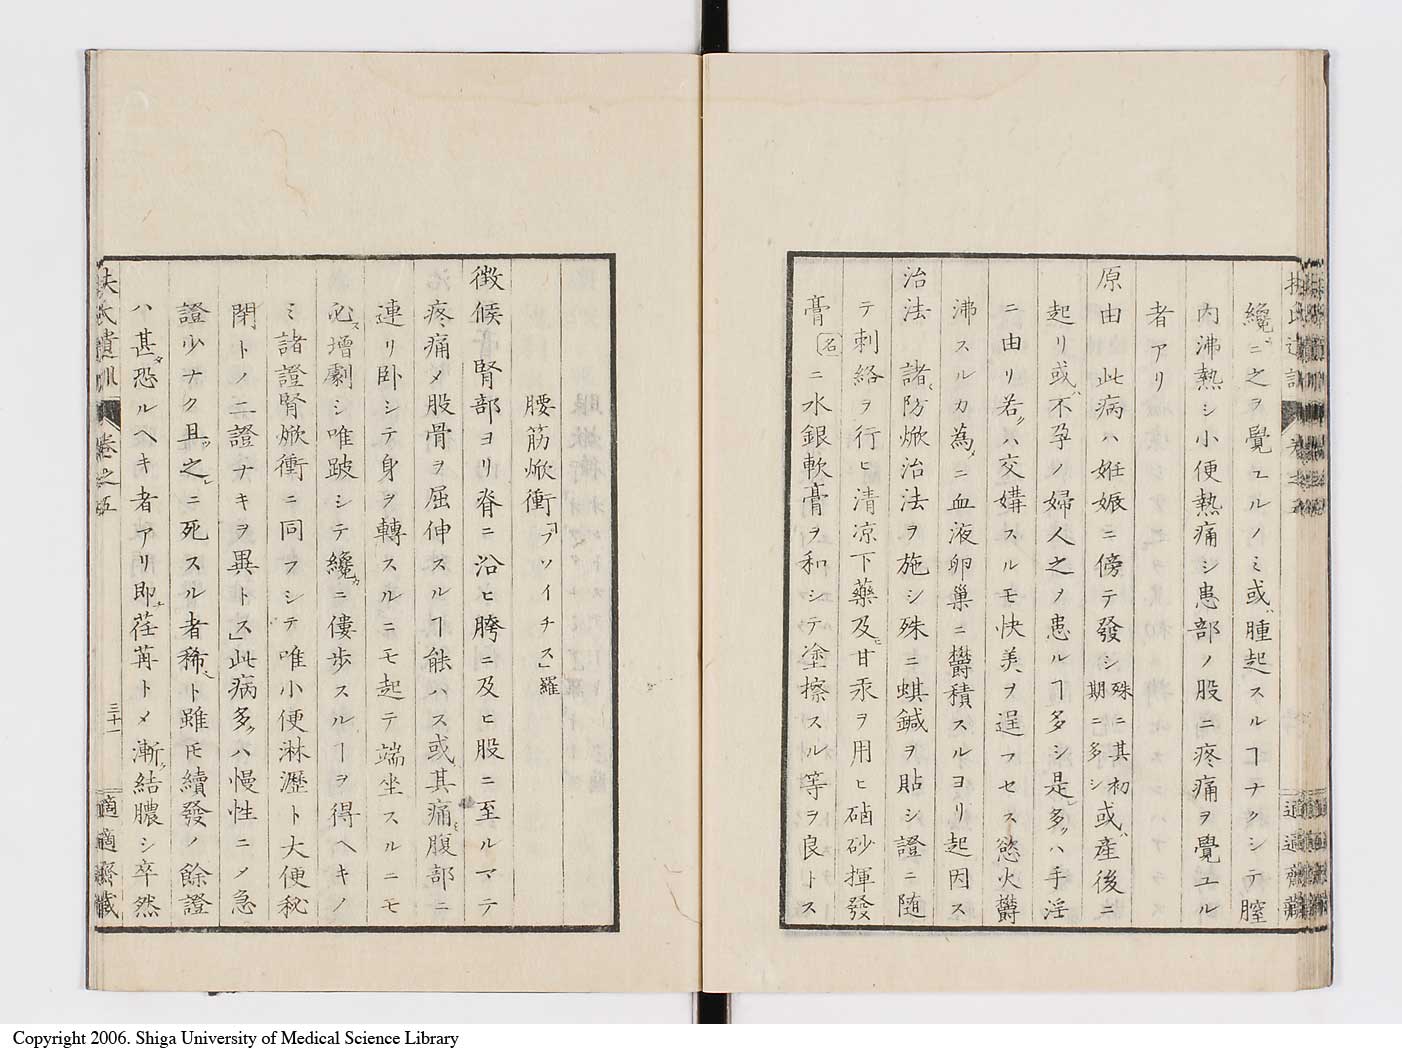 纔ニ之ヲ覺ユルノミ或ハ腫起スルヿナクシテ膣
内沸熱シ小便熱痛シ患部ノ股ニ疼痛ヲ覺ユル
者アリ
原由 此病ハ姙娠ニ傍テ發シ殊ニ其初期ニ多シ或ハ産後ニ
起リ或ハ不孕ノ婦人之ノ患ルヿ多シ是レ多クハ手淫
ニ由リ若クハ交媾スルモ快美ヲ逞フセス慾火欝
沸スルカ為メニ血液卵巢ニ欝積スルヨリ起因ス
治法 諸ノ防焮治法ヲ施シ殊ニ蜞鍼ヲ貼シ證ニ随
テ刺絡ヲ行ヒ清凉下藥及ヒ甘汞ヲ用ヒ硇砂揮發
膏名ニ水銀軟膏ヲ和シテ塗擦スル等ヲ良トス
腰筋焮衝「プソイチス」羅
徴候 腎部ヨリ脊ニ沿ヒ胯ニ及ヒ股ニ至ルマテ
疼痛メ股骨ヲ屈伸スルヿ能ハス或ハ其痛腹部ニ
連リ卧シテ身ヲ轉スルニモ起テ端坐スルニモ
必ス增劇シ唯跛シテ纔カニ僂歩スルヿヲ得ヘキノ
ミ諸證腎焮衝ニ同フシテ唯小便淋瀝ト大便秘
閉トノ二證ナキヲ異トス」此病多クハ慢性ニメ急
證少ナク且ツ之ニ死スル者稀レト雖モ續發ノ餘證
ハ甚タ恐ルヘキ者アリ即チ荏苒トメ漸ク結膿シ卒然
扶氏遺訓 卷之五 三十一 適適齋藏